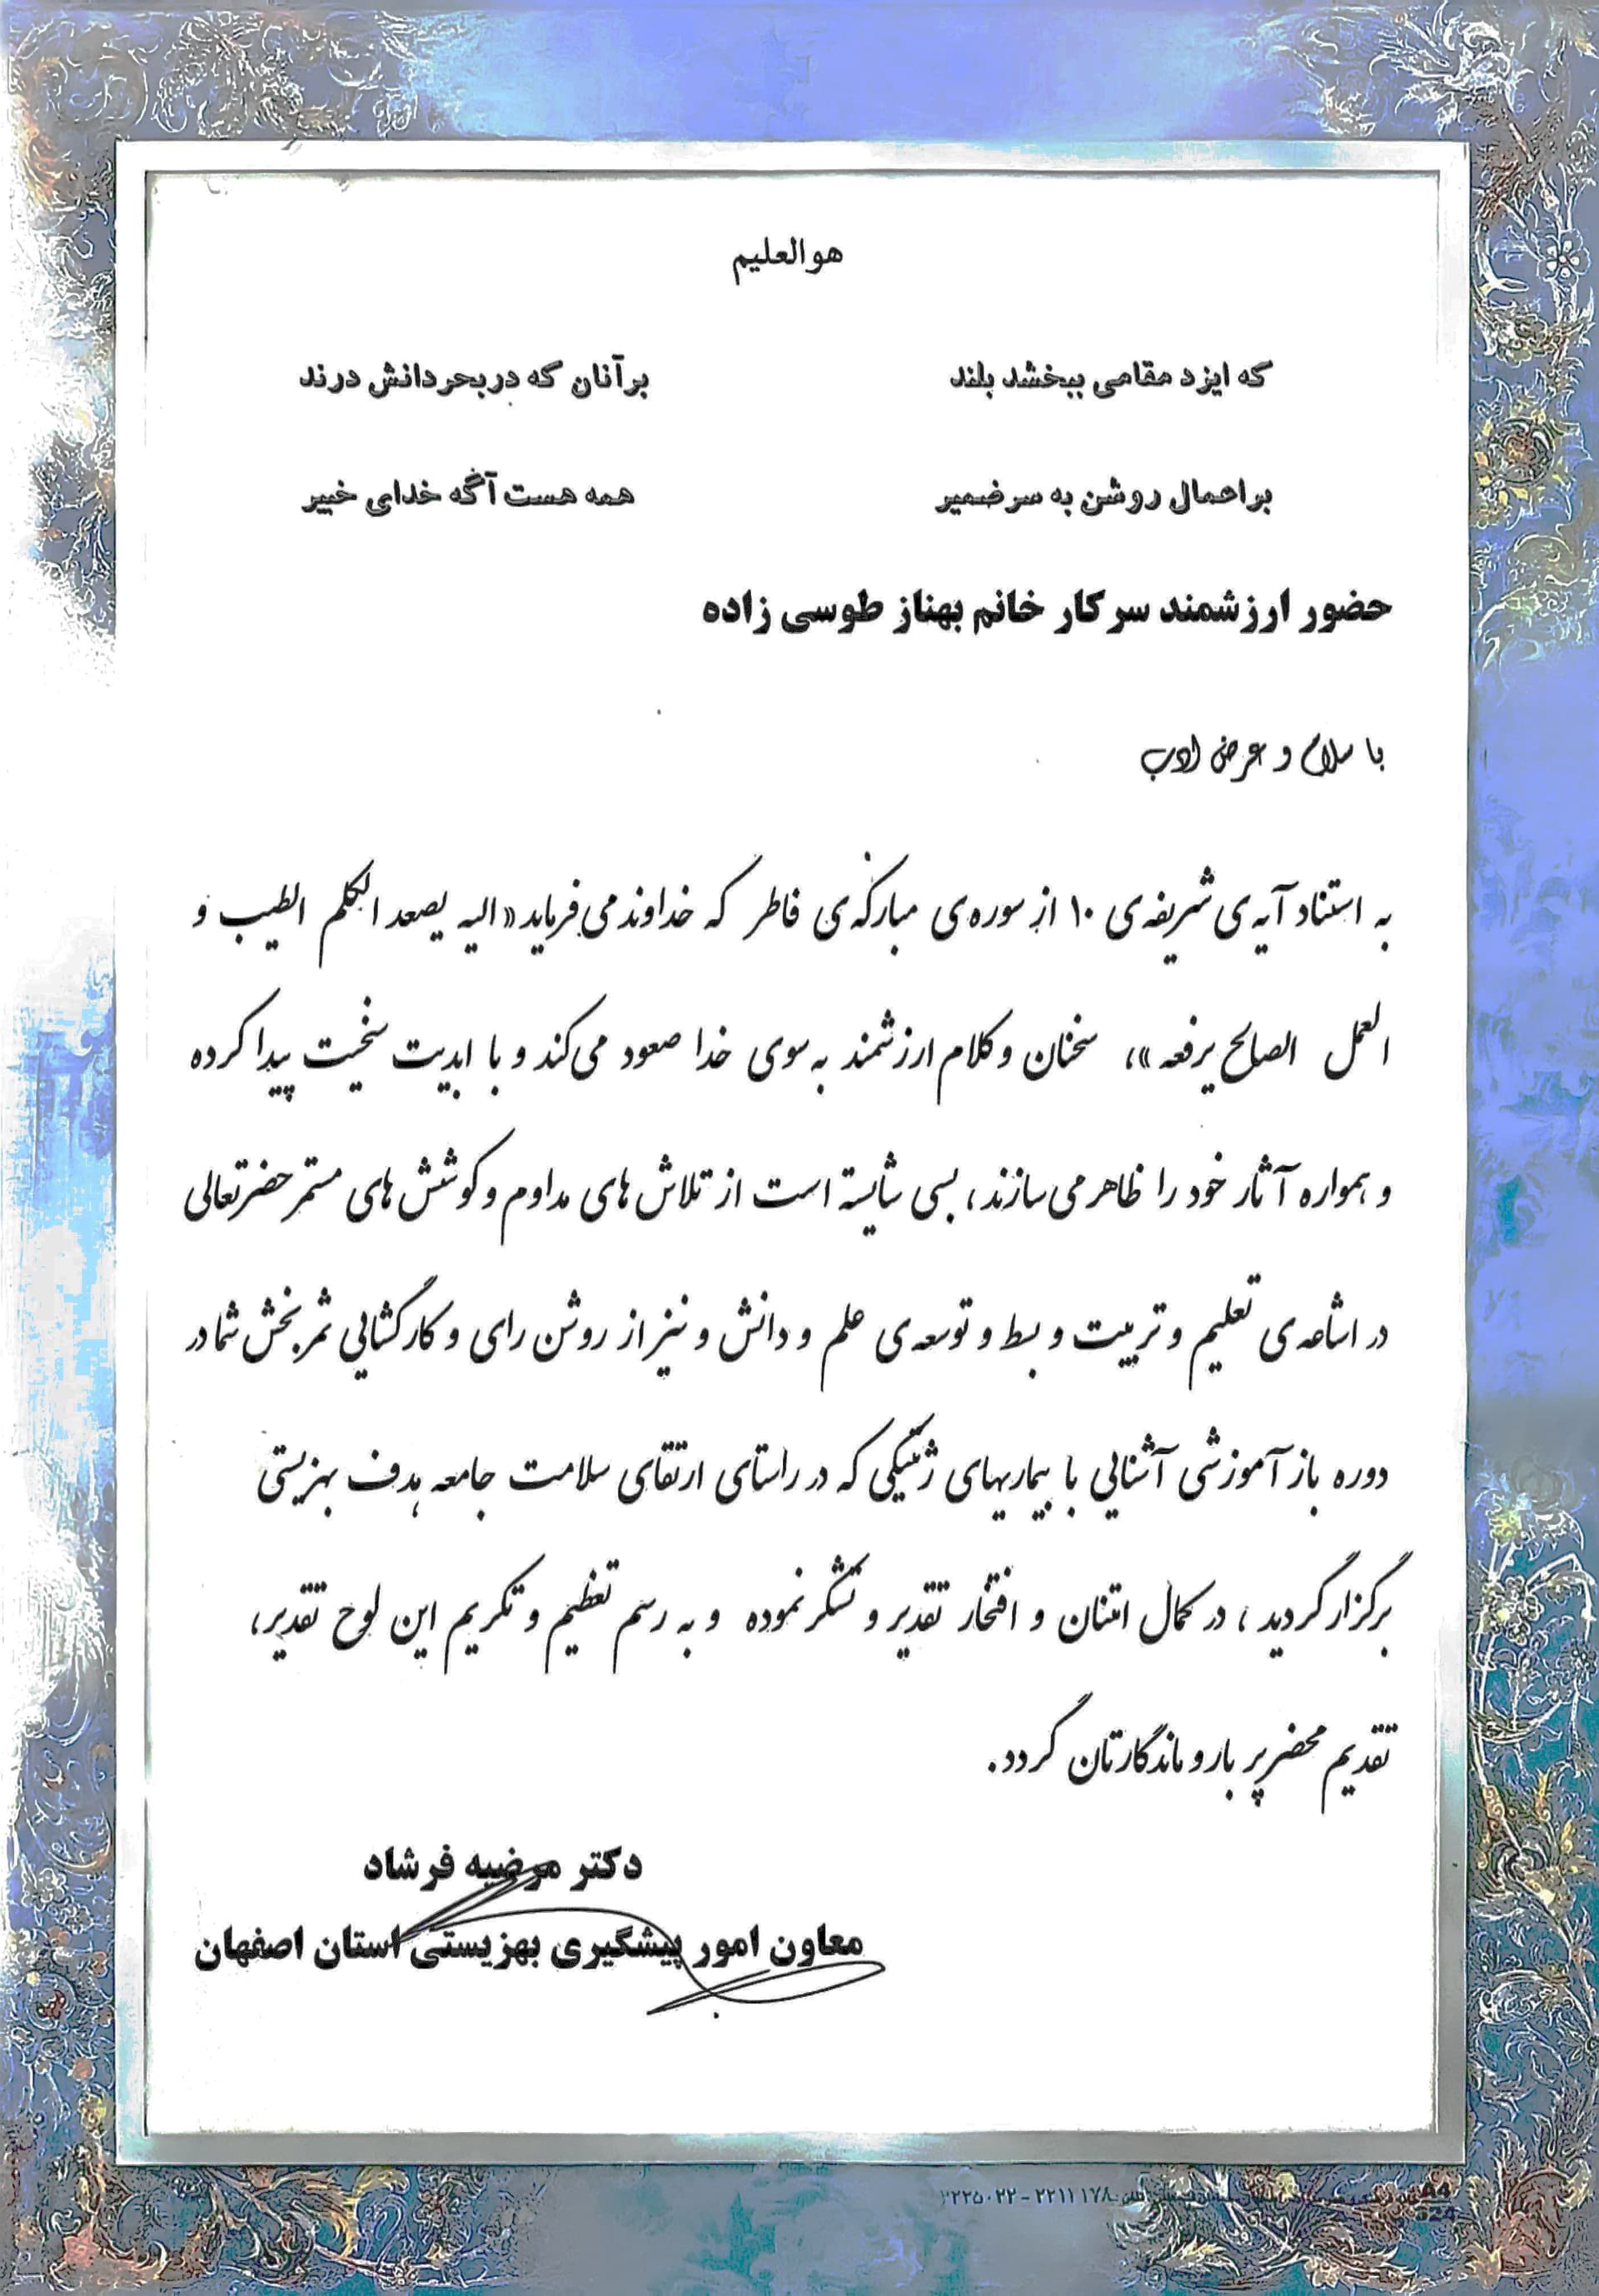 هوالعلیم
که ایزد مقامی ببخشد بلند برآنان که دربحردانش درند
براعمال روشن به سرضمیر همه هست آگه خدای خبیر
حضور ارزشمند سرکار خانم بهناز طوسی زاده
با سلام و عرض ادب
به استناد آیه ی شریفه ی ۱۰ از سوره ی مبارکه ی فاطر که خداوند می فرماید «الیه یصعد الکلم الطیب و
العمل الصالح یرفعه »، سخنان و کلام ارزشمند به سوی خدا صعود می کند و با ابدیت سنخیت پیدا کرده
و همواره آثار خود را ظاهر می سازند، بسی شایسته است از تلاش های مداوم و کوشش های مستمر حضرتعالی
در اشاعه ی تعلیم و تربیت و بسط و توسعه ی علم و دانش و نیز از روشن رای و کارگشایی ثمربخش شما در
دوره باز آموزشی آشنایی با بیماریهای ژنتیکی که در راستای ارتقای سلامت جامعه هدف بهزیستی
برگزار گردید ، در کمال امتنان و افتخار تقدیر و تشکر نموده و به رسم تعظیم و تکریم این لوح تقدیر،
تقدیم محضر پر بار و ماندگارتان گردد.
دکتر مرضیه فرشاد
معاون امور پیشگیری بهزیستی استان اصفهان
۳۲۲۵۰۲۲ - ۲۲۱۱۱۷۸
A4
524